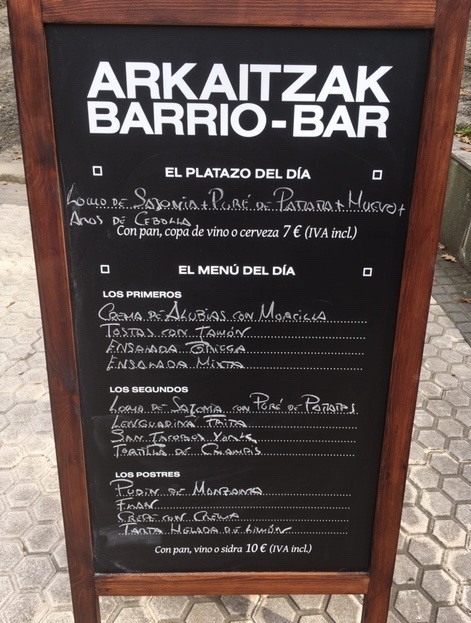 ARKAITZAK
BARRIO-BAR
EL PLATAZO DEL DÍA
LOMO DE SAJONIA + PURÉ DE PATATA + HUEVO +
AROS DE CEBOLLA
Con pan, copa de vino o cerveza 7 € (IVA incl.)
EL MENÚ DEL DÍA
LOS PRIMEROS
CREMA DE ALUBIAS CON MORCILLA
TOSTAS CON JAMÓN
ENSALADA GRIEGA
ENSALADA MIXTA
LOS SEGUNDOS
LOMO DE SAJONIA CON PURÉ DE PATATAS
LENGUADINA FRITA
SAN JACOBOS YORK
TORTILLA DE CHAMPIS
LOS POSTRES
PUDIN DE MANZANA
FLAN
CREPE CON CREMA
TARTA HELADA DE LIMÓN
Con pan, vino o sidra 10 € (IVA incl.)